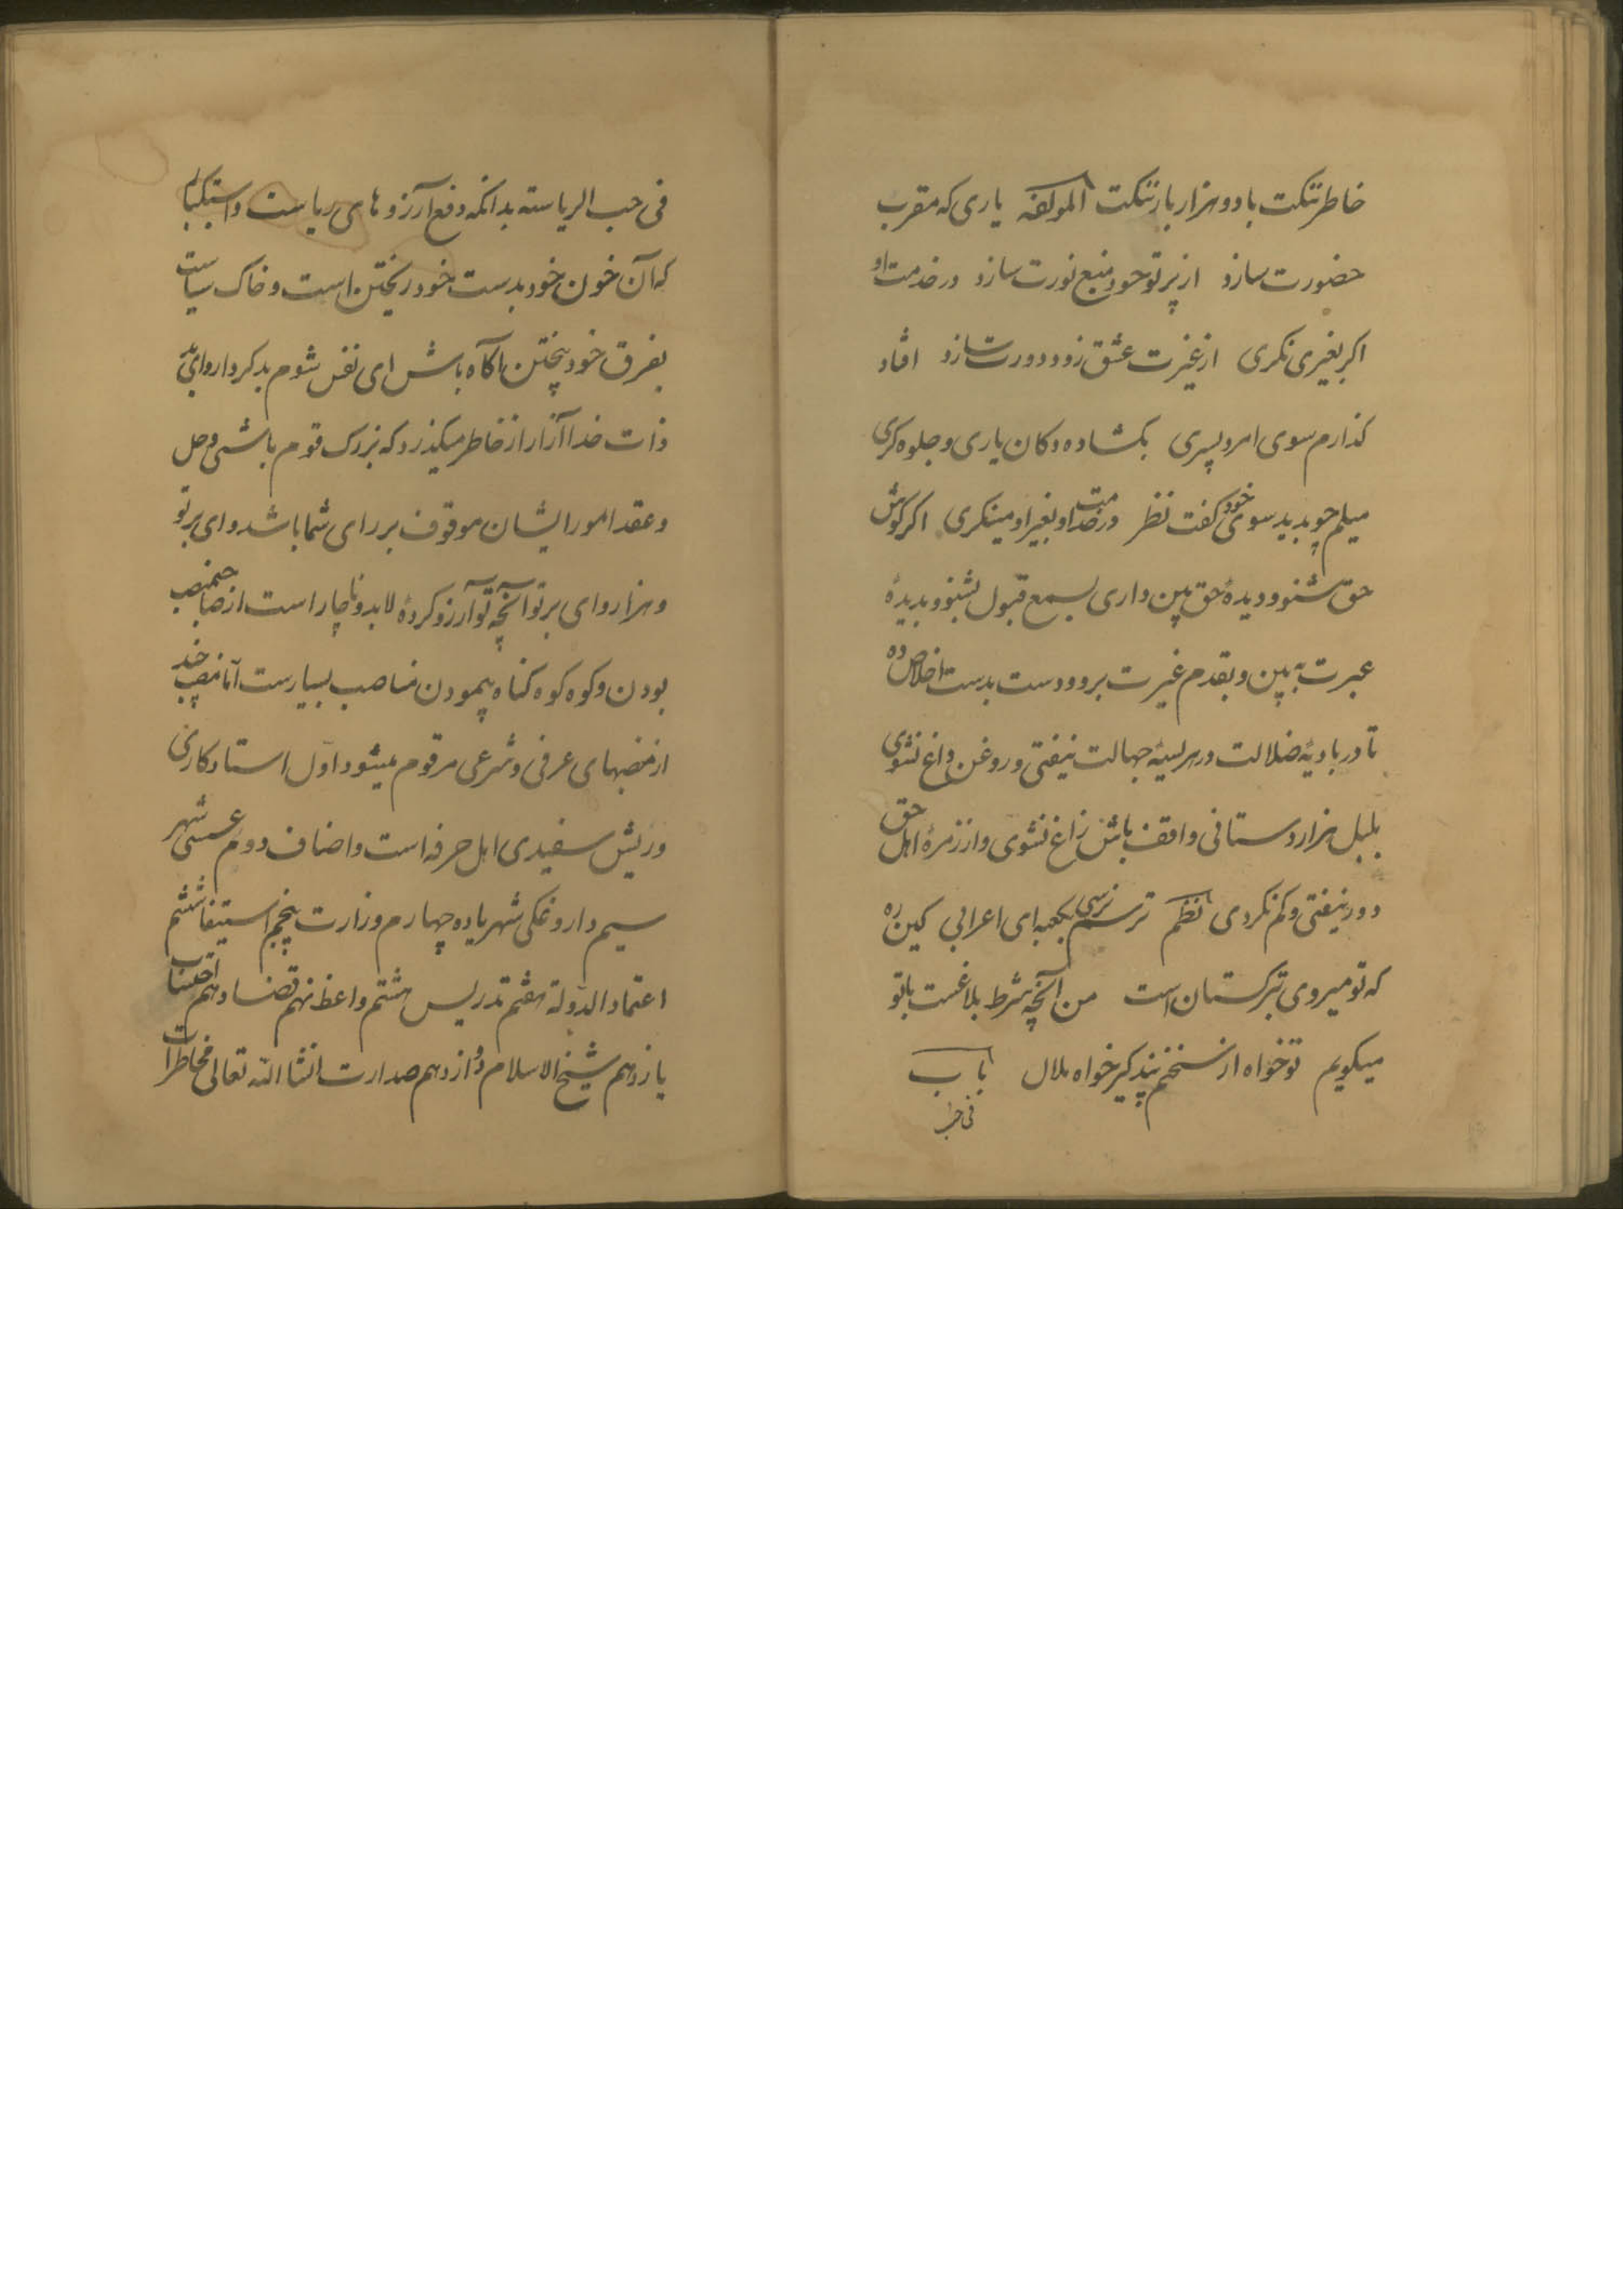 خاطر تنکت باد و هزار بار تنکت المولفه یاری که مقرب
حضورت سازد از پرتو خود منبع نورت سازد در خدمت او
اکر بغیری نکری از غیرت عشق زود دورت سازد افتاد
کذارم سوی امرد پسری بکشاده دکان یاری و جلوه کری
میلم چو بدید سوی خود کفت نظر در خدمت او بغیر او مینکری اکر کوش
حق شنو و دیدهٔ حق بین داری بسمع قبول بشنو و بدیدهٔ
عبرت به بین و بقدم غیرت برو و دست بدست اخلاص ده
تا در بادیهٔ ضلالت و هرلسیهٔ جهالت نیفتی و روغن داغ نشوی
بلبل هزاردستانی واقف باش زاغ نشوی و از زمرهٔ اهل حق
دور نیفتی و کم نکردی نظم ترسم نرسی بکعبه ای اعرابی کین ره
که تو میروی بترکستان است من آنچه شرط بلاغست با تو
میکویم تو خواه از سخنم پند کیر خواه ملال باب
فی حب
فی حب الریاسته بدانکه دفع آرزوهای ریاست و استکبار
که آن خون خود بدست خود ریختن است و خاک سیاست
بفرق خود بیختن آکاه باش ای نفس شوم بدکردار وای بد
ذات خدا آزار از خاطر میکذرد که بزرک قوم باشی و حل
و عقد امور ایشان موقوف بر رای شما باشد وای بر تو
و هزار وای بر تو آنچه تو آرزو کردهٔ لابد و ناچار است از صاحب منصب
بودن و کوه کوه کناه پیمودن مناصب بسیارست آما منصب چند
از منصبهای عرفی و شرعی مرقوم میشود اول استادکاری
و ریش سفیدی اهل حرفه است و اصناف دوم عسسی شهر
سیم داروغکی شهر یا ده چهارم وزارت پنجم استیفا ششم
اعتماد الدولة هفتم تدریس هشتم واعظ نهم قضا دهم احتساب
یازدهم شیخ الاسلام دوازدهم صدارت انشا الله تعالی مخاطرات